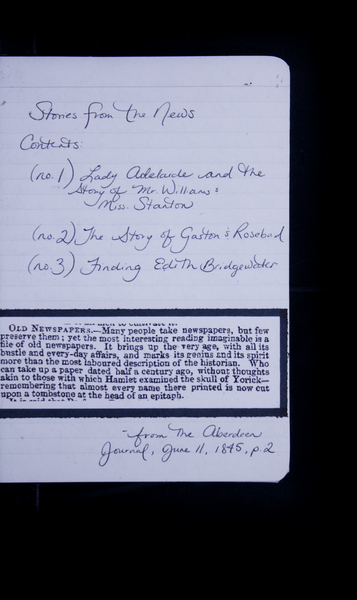 Stories from the News
Contents:
(no. 1) Lady Adelaide and the
Story of Mr. Willians &
Miss. Stanton
(no. 2) The Story of Gaston & Rosebud
(no. 3) Finding Edith Bridgewater
OLD NEWSPAPERS.—Many people take newspapers, but few
preserve them; yet the most interesting reading imaginable is a
file of old newspapers. It brings up the very age, with all its
bustle and every-day affairs, and marks its genius and its spirit
more than the most laboured description of the historian. Who
can take up a paper dated half a century ago, without thoughts
akin to those with which Hamlet examined the skull of Yorick—
remembering that almost every name there printed is now cut
upon a tombstone at the head of an epitaph.
- from The Aberdeen
Journal, June 11, 1845, p.2